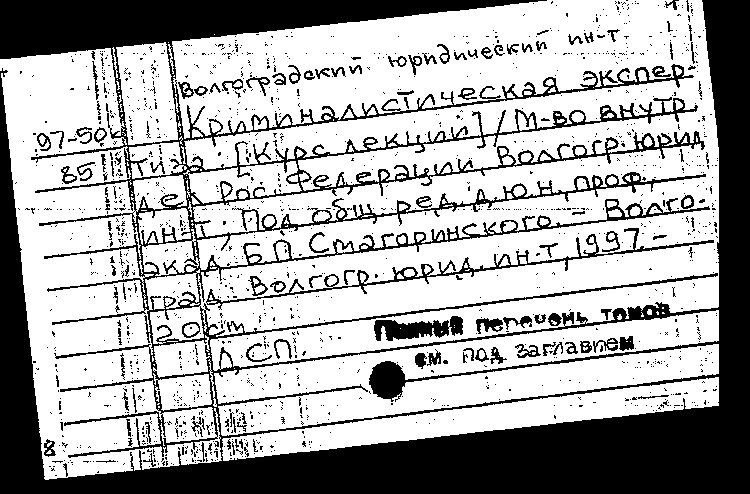 Волгоградский юридический ин-т
97-50
Криминалистическая экспер-
85 тиза: [Курс лекций] / М-во внутр.
дел Рос. Федерации, Волгогр. юрид
ин-т; Под общ. ред. д.ю.н., проф.,
акад. Б.П. Смагоринского. – Волго-
град: Волгогр. юрид. ин-т, 1997. –
20 см.
ДСП.
Полный перечень томов
см. под заглавием
8